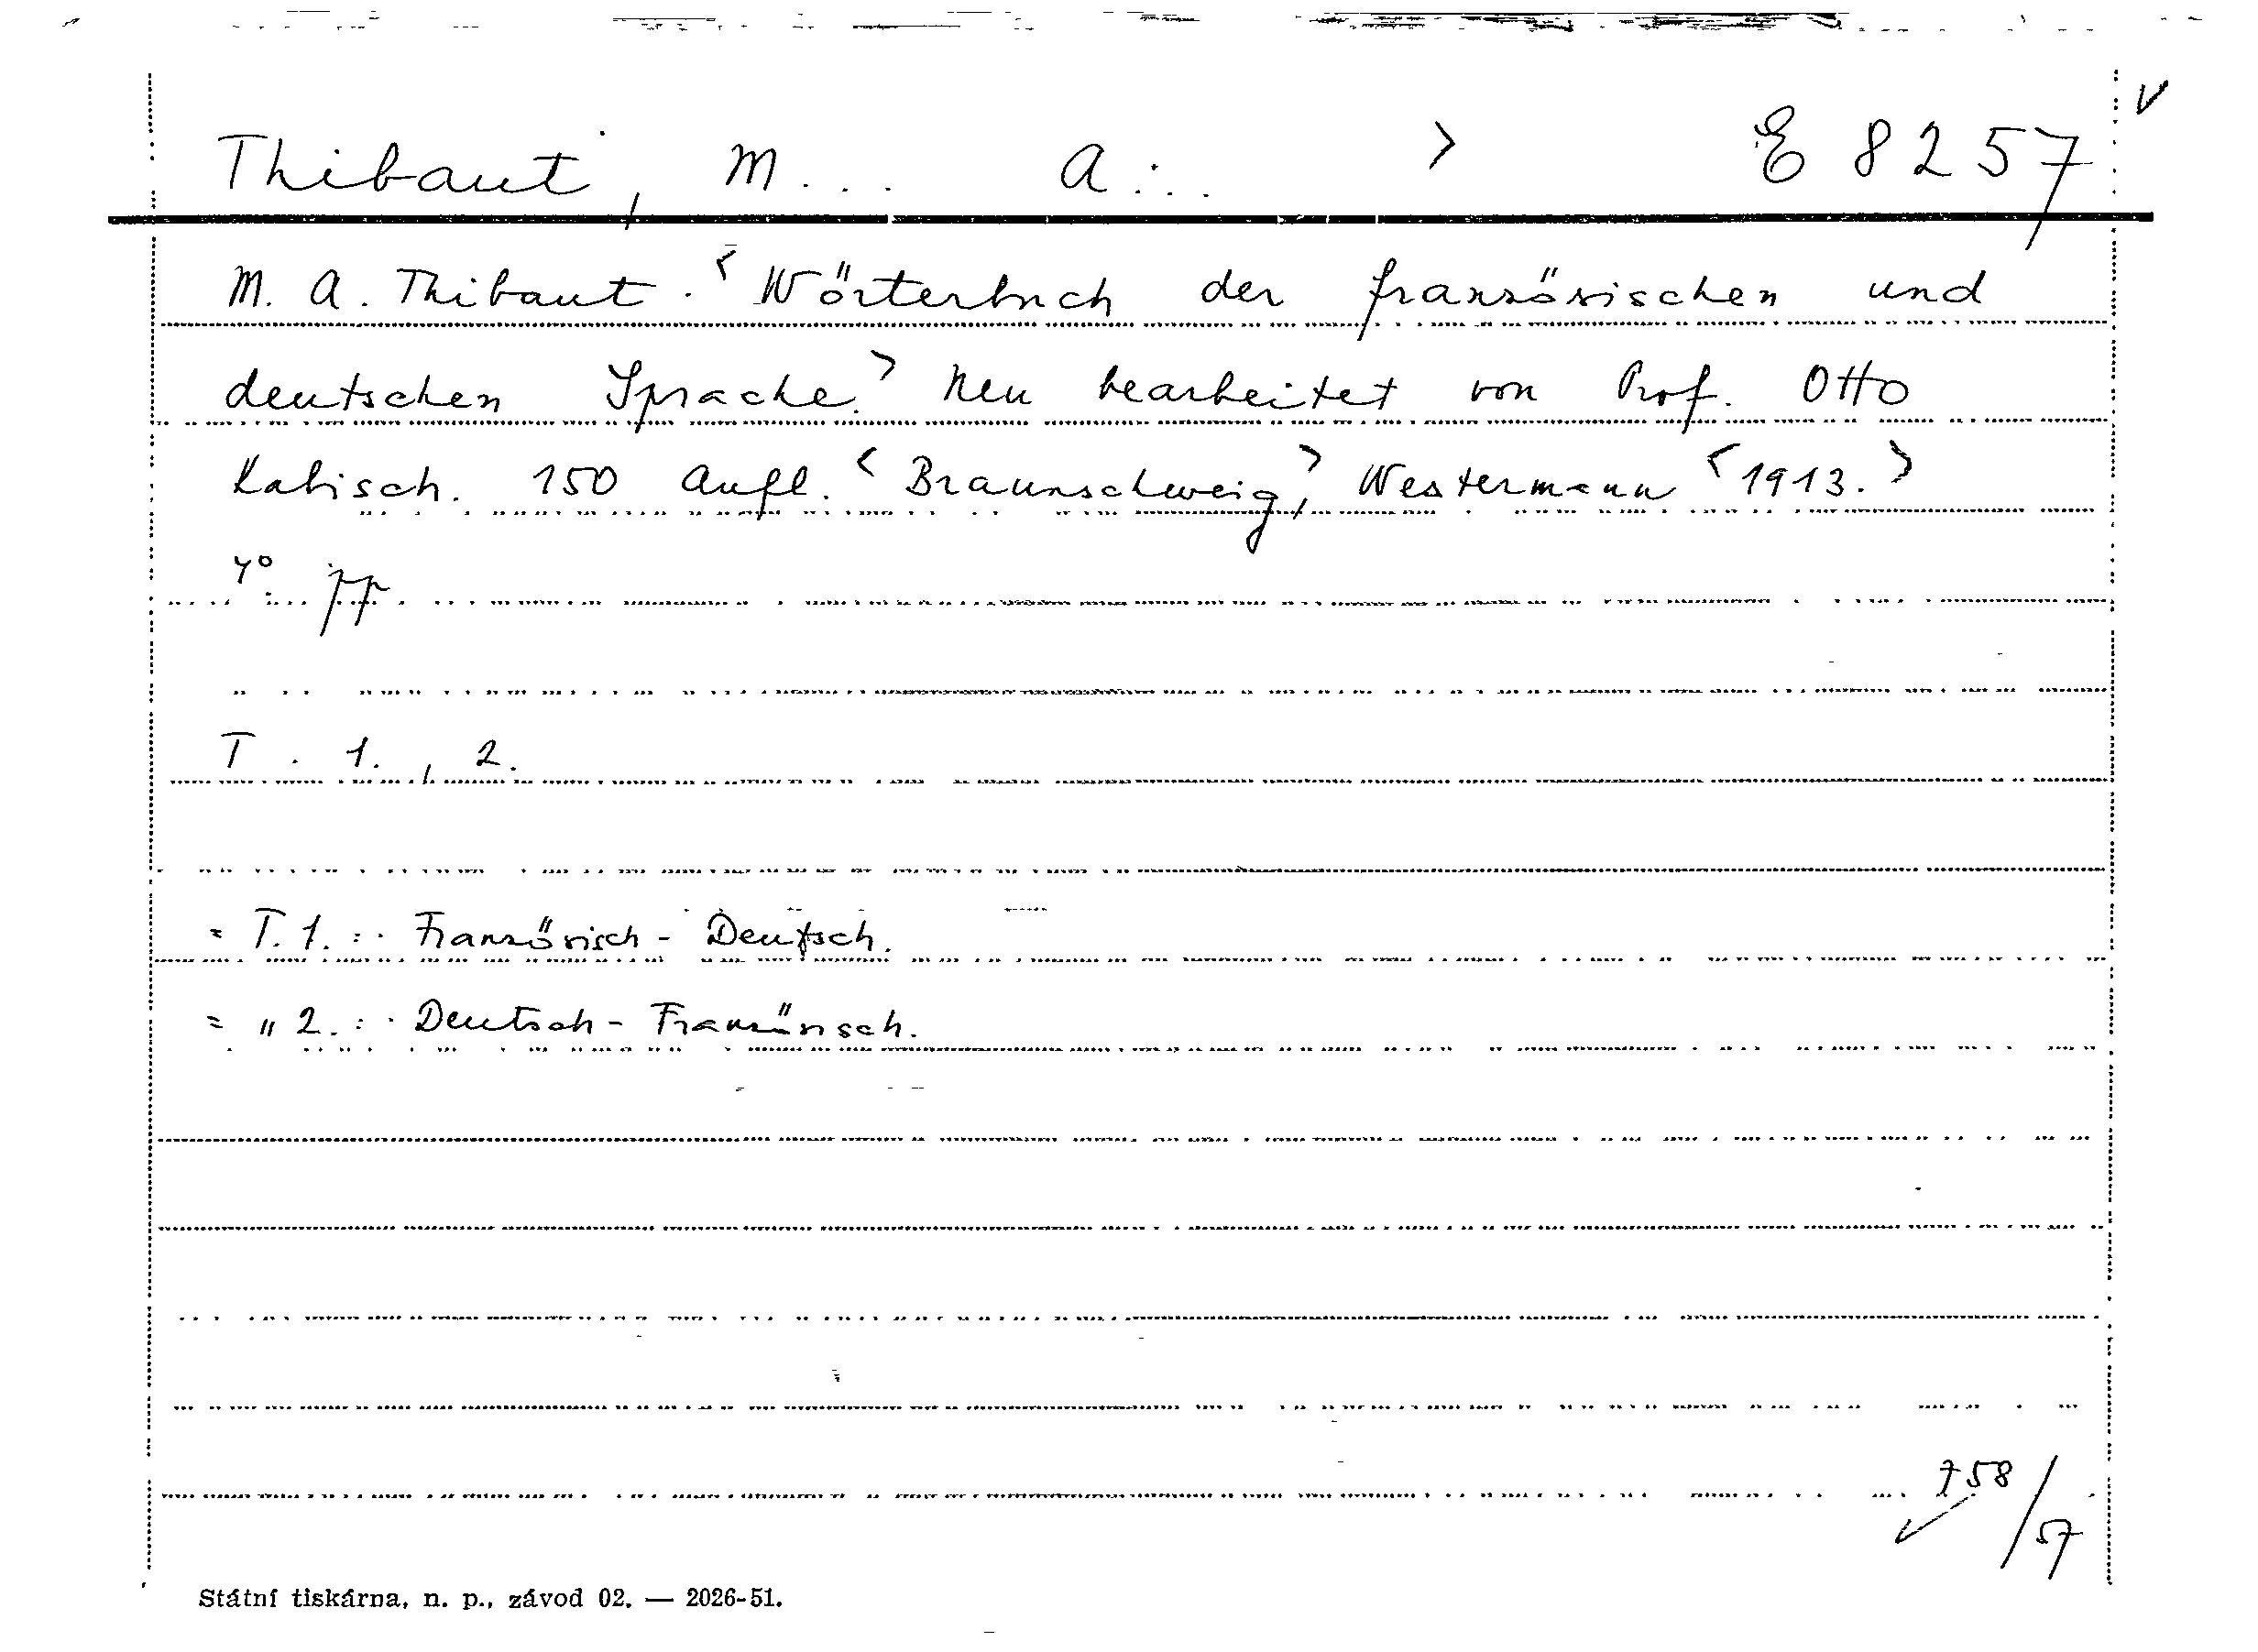 Thibaut, M... A... > E 8257 v
M. A. Thibaut. <Wörterbuch der französischen und
deutschen Sprache.> Neu bearbeitet von Prof. Otto
Kabisch. 150 Aufl. <Braunschweig,> Westermann <1913.>
4° pp
T. 1., 2.
= T. 1. : · Französisch - Deutsch.
= „ 2. : · Deutsch - Französisch.
758/57
Státní tiskárna, n. p., závod 02. — 2026-51.